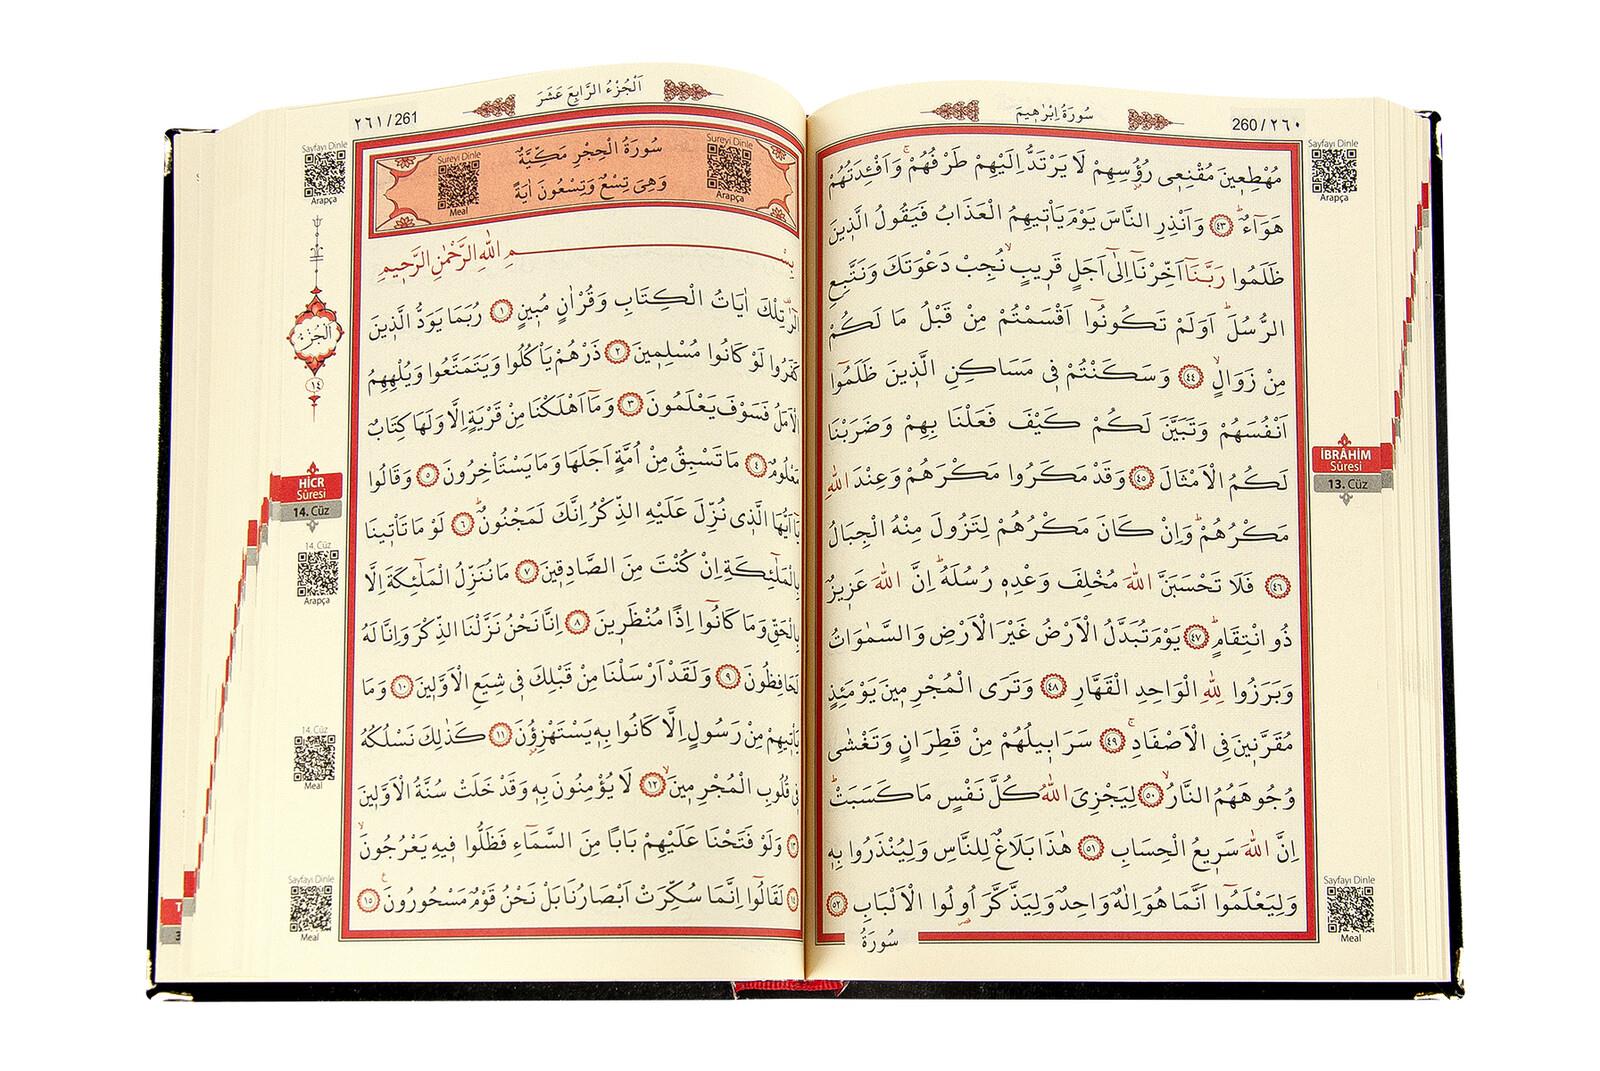 سُورَةُ اِبْرٰهٖيمَ
260/٢٦٠
Sayfayı Dinle
Arapça
مُهْطِعٖينَ مُقْنِعٖى رُؤُسِهِمْ لَا يَرْتَدُّ اِلَيْهِمْ طَرْفُهُمْۚ وَاَفْـِٔدَتُهُمْ
هَوَٓاءٌؕ ﴿٤٣﴾ وَاَنْذِرِ النَّاسَ يَوْمَ يَاْتٖيهِمُ الْعَذَابُ فَيَقُولُ الَّذٖينَ
ظَلَمُوا رَبَّنَٓا اَخِّرْنَٓا اِلٰٓى اَجَلٍ قَرٖيبٍۙ نُجِبْ دَعْوَتَكَ وَنَتَّبِعِ
الرُّسُلَؕ اَوَلَمْ تَكُونُٓوا اَقْسَمْتُمْ مِنْ قَبْلُ مَا لَكُمْ
مِنْ زَوَالٍۙ ﴿٤٤﴾ وَسَكَنْتُمْ فٖى مَسَاكِنِ الَّذٖينَ ظَلَمُٓوا
اَنْفُسَهُمْ وَتَبَيَّنَ لَكُمْ كَيْفَ فَعَلْنَا بِهِمْ وَضَرَبْنَا
لَكُمُ الْاَمْثَالَ ﴿٤٥﴾ وَقَدْ مَكَرُوا مَكْرَهُمْ وَعِنْدَ اللّٰهِ
مَكْرُهُمْؕ وَاِنْ كَانَ مَكْرُهُمْ لِتَزُولَ مِنْهُ الْجِبَالُ
﴿٤٦﴾ فَلَا تَحْسَبَنَّ اللّٰهَ مُخْلِفَ وَعْدِهٖ رُسُلَهُؕ اِنَّ اللّٰهَ عَزٖيزٌ
ذُو انْتِقَامٍؕ ﴿٤٧﴾ يَوْمَ تُبَدَّلُ الْاَرْضُ غَيْرَ الْاَرْضِ وَالسَّمٰوَاتُ
وَبَرَزُوا لِلّٰهِ الْوَاحِدِ الْقَهَّارِ ﴿٤٨﴾ وَتَرَى الْمُجْرِمٖينَ يَوْمَئِذٍ
مُقَرَّنٖينَ فِى الْاَصْفَادِۚ ﴿٤٩﴾ سَرَابٖيلُهُمْ مِنْ قَطِرَانٍ وَتَغْشٰى
وُجُوهَهُمُ النَّارُۙ ﴿٥٠﴾ لِيَجْزِىَ اللّٰهُ كُلَّ نَفْسٍ مَا كَسَبَتْؕ
اِنَّ اللّٰهَ سَرٖيعُ الْحِسَابِ ﴿٥١﴾ هٰذَا بَلَاغٌ لِلنَّاسِ وَلِيُنْذَرُوا بِهٖ
وَلِيَعْلَمُٓوا اَنَّمَا هُوَ اِلٰهٌ وَاحِدٌ وَلِيَذَّكَّرَ اُو۬لُوا الْاَلْبَابِ ﴿٥٢﴾
سُورَةُ
İBRÂHİM
Sûresi
13. Cüz
Sayfayı Dinle
Meal
اَلْجُزْءُ الرَّابِعَ عَشَرَ
٢٦١/261
Sayfayı Dinle
Arapça
سُورَةُ الْحِجْرِ مَكِّيَّةٌ
وَهِىَ تِسْعٌ وَتِسْعُونَ اٰيَةً
Sureyi Dinle
Arapça
Sureyi Dinle
Meal
بِسْمِ اللّٰهِ الرَّحْمٰنِ الرَّحٖيمِ
الٓرٰ۠ تِلْكَ اٰيَاتُ الْكِتَابِ وَقُرْاٰنٍ مُبٖينٍ ﴿١﴾ رُبَمَا يَوَدُّ الَّذٖينَ
كَفَرُوا لَوْ كَانُوا مُسْلِمٖينَ ﴿٢﴾ ذَرْهُمْ يَاْكُلُوا وَيَتَمَتَّعُوا وَيُلْهِهِمُ
الْاَمَلُ فَسَوْفَ يَعْلَمُونَ ﴿٣﴾ وَمَٓا اَهْلَكْنَا مِنْ قَرْيَةٍ اِلَّا وَلَهَا كِتَابٌ
مَعْلُومٌ ﴿٤﴾ مَا تَسْبِقُ مِنْ اُمَّةٍ اَجَلَهَا وَمَا يَسْتَاْخِرُونَ ﴿٥﴾ وَقَالُوا
يَٓا اَيُّهَا الَّذٖى نُزِّلَ عَلَيْهِ الذِّكْرُ اِنَّكَ لَمَجْنُونٌؕ ﴿٦﴾ لَوْ مَا تَاْتٖينَا
بِالْمَلٰٓئِكَةِ اِنْ كُنْتَ مِنَ الصَّادِقٖينَ ﴿٧﴾ مَا نُنَزِّلُ الْمَلٰٓئِكَةَ اِلَّا
بِالْحَقِّ وَمَا كَانُٓوا اِذًا مُنْظَرٖينَ ﴿٨﴾ اِنَّا نَحْنُ نَزَّلْنَا الذِّكْرَ وَاِنَّا لَهُ
لَحَافِظُونَ ﴿٩﴾ وَلَقَدْ اَرْسَلْنَا مِنْ قَبْلِكَ فٖى شِيَعِ الْاَوَّلٖينَ ﴿١٠﴾ وَمَا
يَاْتٖيهِمْ مِنْ رَسُولٍ اِلَّا كَانُوا بِهٖ يَسْتَهْزِؤُ۫نَ ﴿١١﴾ كَذٰلِكَ نَسْلُكُهُ
فٖى قُلُوبِ الْمُجْرِمٖينَۙ ﴿١٢﴾ لَا يُؤْمِنُونَ بِهٖ وَقَدْ خَلَتْ سُنَّةُ الْاَوَّلٖينَ
﴿١٣﴾ وَلَوْ فَتَحْنَا عَلَيْهِمْ بَابًا مِنَ السَّمَٓاءِ فَظَلُّوا فٖيهِ يَعْرُجُونَۙ
﴿١٤﴾ لَقَالُٓوا اِنَّمَا سُكِّرَتْ اَبْصَارُنَا بَلْ نَحْنُ قَوْمٌ مَسْحُورُونَࣖ ﴿١٥﴾
اَلْجُزْءُ
١٤
HİCR
Sûresi
14. Cüz
14. Cüz
Arapça
14. Cüz
Meal
Sayfayı Dinle
Meal